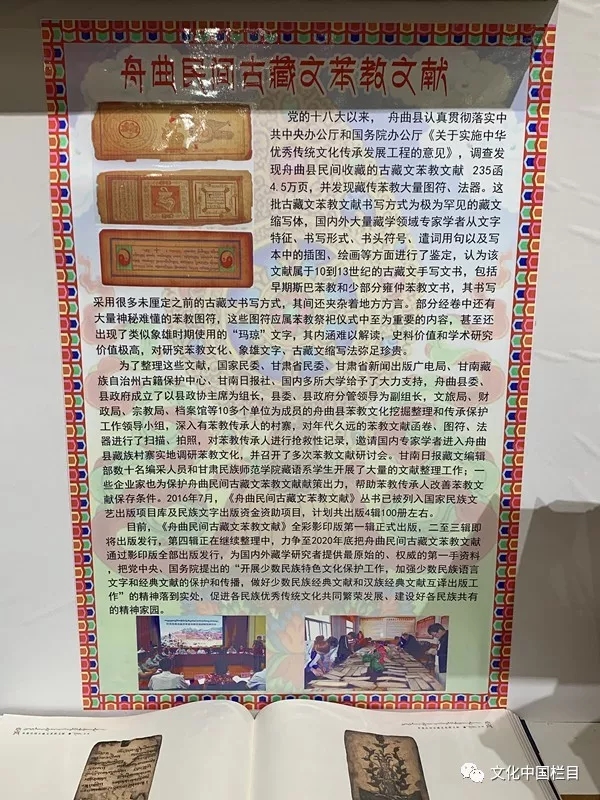 舟曲民间古藏文苯教文献
党的十八大以来， 舟曲县认真贯彻落实中
共中央办公厅和国务院办公厅《关于实施中华
优秀传统文化传承发展工程的意见》，调查发
现舟曲县民间收藏的古藏文苯教文献 235函
4.5万页，并发现藏传苯教大量图符、法器。这
批古藏文苯教文献书写方式为极为罕见的藏文
缩写体，国内外大量藏学领域专家学者从文字
特征、书写形式、书头符号、遣词用句以及写
本中的插图、绘画等方面进行了鉴定，认为该
文献属于10到13世纪的古藏文手写文书，包括
早期斯巴苯教和少部分雍仲苯教文书，其书写
采用很多未厘定之前的古藏文书写方式，其间还夹杂着地方方言。部分经卷中还有
大量神秘难懂的苯教图符，这些图符应属苯教祭祀仪式中至为重要的内容，甚至还
出现了类似象雄时期使用的“玛琼”文字，其内涵难以解读，史料价值和学术研究
价值极高，对研究苯教文化、象雄文字、古藏文缩写法弥足珍贵。
为了整理这些文献，国家民委、甘肃省民委、甘肃省新闻出版广电局、甘南藏
族自治州古籍保护中心、甘南日报社、国内多所大学给予了大力支持，舟曲县委、
县政府成立了以县政协主席为组长，县委、县政府分管领导为副组长，文旅局、财
政局、宗教局、档案馆等10多个单位为成员的舟曲县苯教文化挖掘整理和传承保护
工作领导小组，深入有苯教传承人的村寨，对年代久远的苯教文献函卷、图符、法
器进行了扫描、拍照，对苯教传承人进行抢救性记录，邀请国内专家学者进入舟曲
县藏族村寨实地调研苯教文化，并召开了多次苯教文献研讨会。甘南日报藏文编辑
部数十名编采人员和甘肃民族师范学院藏语系学生开展了大量的文献整理工作；一
些企业家也为保护舟曲民间古藏文苯教文献献策出力，帮助苯教传承人改善苯教文
献保存条件。2016年7月，《舟曲民间古藏文苯教文献》丛书已被列入国家民族文
艺出版项目库及民族文字出版资金资助项目，计划共出版4辑100册左右。
目前，《舟曲民间古藏文苯教文献》全彩影印版第一辑正式出版，二至三辑即
将出版发行，第四辑正在继续整理中，力争至2020年底把舟曲民间古藏文苯教文献
通过影印版全部出版发行，为国内外藏学研究者提供最原始的、权威的第一手资料
，把党中央、国务院提出的“开展少数民族特色文化保护工作，加强少数民族语言
文字和经典文献的保护和传播，做好少数民族经典文献和汉族经典文献互译出版工
作”的精神落到实处，促进各民族优秀传统文化共同繁荣发展、建设好各民族共有
的精神家园。
文化中国栏目